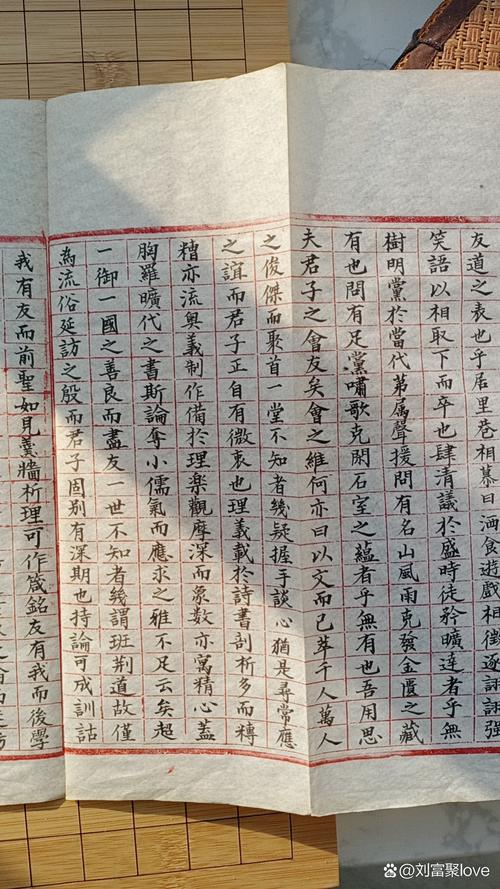 友道之表也乎居里巷相慕日酒食遊戲相徵逐詡詡強
笑語以相取下而卒也肆清議於盛時徒矜曠達者乎無
樹明黨於當代第属聲援問有名山風雨克發金匱之藏
有也問有足黨嘯歌克閑石室之蘊者乎無有也吾用思
夫君子之會友矣會之維何亦曰以文而已萃千人萬人
之俊傑而聚首一堂不知者幾疑握手談心猶是尋常應
之誼而君子正自有微衷也理義載於詩書剖析多而
糟亦流奥義制作備於理楽觀摩深而象数亦寓精心蓋
胸羅曠代之書斯論奪小儒氣而應求之雅不足云矣超
一御一國之善良而盡友一世不知者幾謂班荆道故僅
為流俗延訪之殷而君子固别有深期也持論可成訓詁
我有友而前聖如見羹牆析理可作箴銘友有我而後學
@刘富聚love